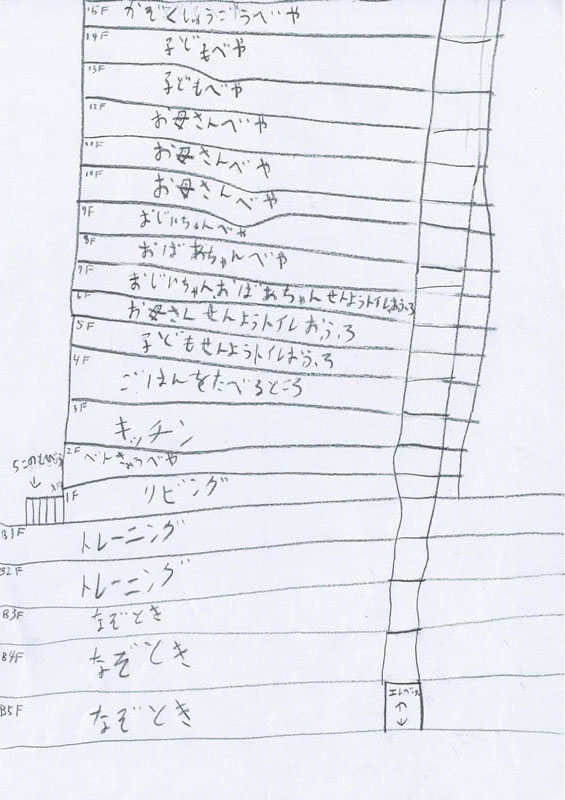 15F かぞくしゅうごうべや
14F 子どもべや
13F 子どもべや
12F お母さんべや
11F お母さんべや
10F お母さんべや
9F おじいちゃんべや
8F おばあちゃんべや
7F おじいちゃん、おばあちゃん せんようトイレおふろ
6F お母さん せんようトイレ おふろ
5F 子どもせんようトイレおふろ
4F ごはんをたべるところ
3F キッチン
2F べんきょうべや
5このとびら
↓
1F リビング
B1F トレーニング
B2F トレーニング
B3F なぞとき
B4F なぞとき
B5F なぞとき